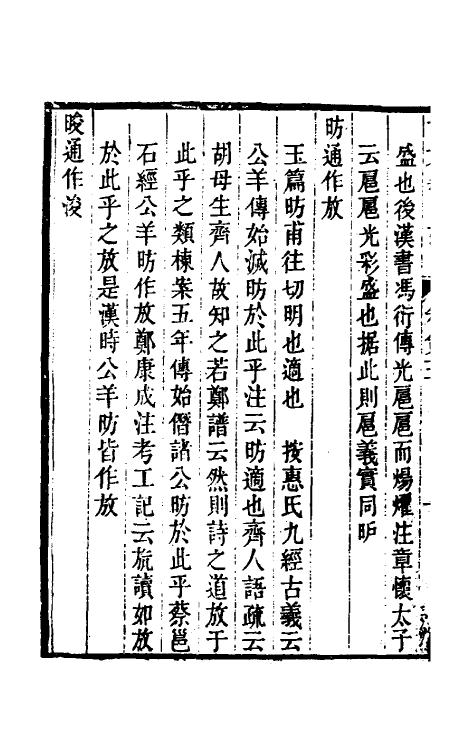 盛也後漢書馮衍傳光扈扈而煬燿注章懷太子
云扈扈光彩盛也据此則扈義實同昈
昉通作放
玉篇昉甫往切明也適也　按惠氏九經古義云
公羊傳始滅昉於此乎注云昉適也齊人語疏云
胡母生齊人故知之若鄭譜云然則詩之道放于
此乎之類棟案五年傳始僭諸公昉於此乎蔡邕
石經公羊昉作放鄭康成注考工記云旊讀如放
於此乎之放是漢時公羊昉皆作放
晙通作浚